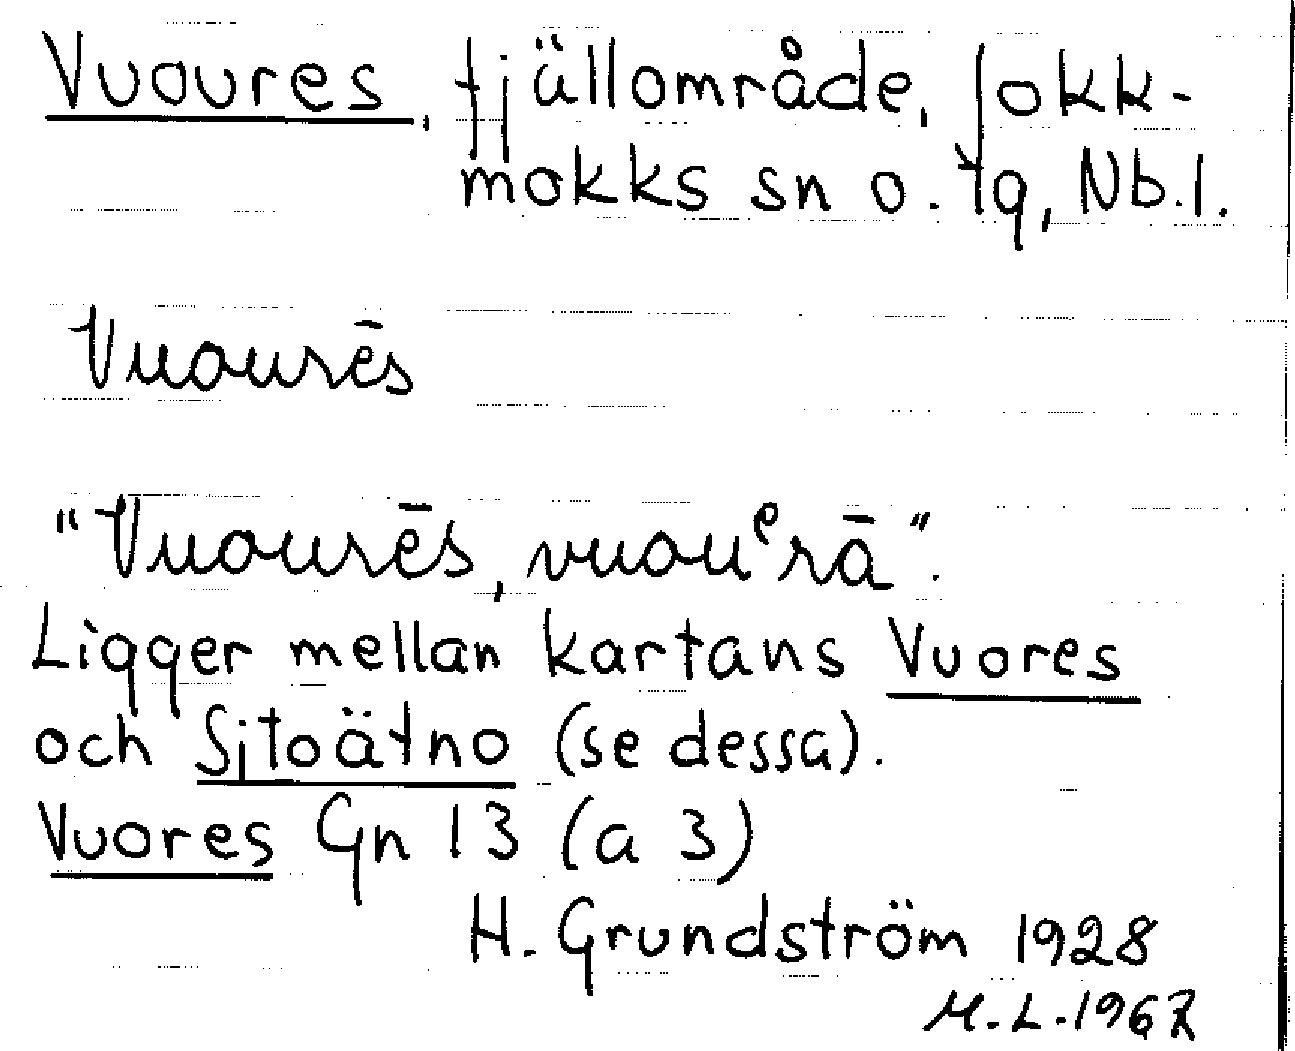 Vuoures, fjällområde, Jokk-
mokks sn o. tg, Nb.l.
Vuourēs
"Vuourēs, vuouᵉrā".
Ligger mellan kartans Vuores
och Sjtoätno (se dessa).
Vuores Gn 13 (a 3)
H. Grundström 1928
M.L.1967